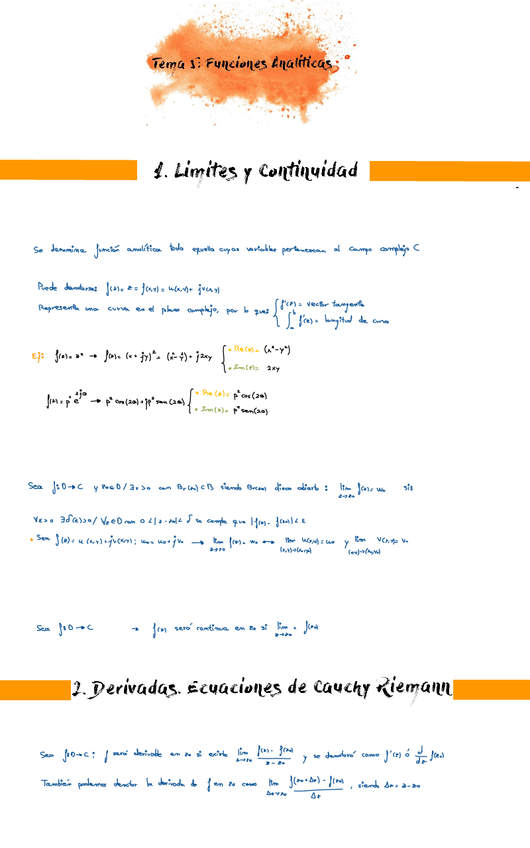 Tema 1: Funciones Analíticas
1. Limites y Continuidad
Se denomina función analítica toda aquella cuyas variables pertenezcan al campo complejo C
Puede denotarse f(z) = z = f(x,y) = u(x,y) + jv(x,y)
Representa una curva en el plano complejo, por lo que { f'(z) = vector tangente
∫ f'(z) = longitud de curva
Ej: f(z) = z² → f(z) = (x + jy)² = (x² - y²) + j2xy { • Re(z) = (x² - y²)
• Im(z) = 2xy
→ p² cos(2θ) + jp² sen(2θ) { • Re(z) = p² cos(2θ)
• Im(z) = p² sen(2θ)
Sea f: D → C y z₀ ∈ D / ∃ r > 0 con Br(z₀) ⊂ D siendo Br(z₀) disco abierto : lim z→z₀ f(z) = w₀ sii
∀ε > 0 ∃ δ(ε) > 0 / ∀z ∈ D con 0 < |z - z₀| < δ se cumpla que |f(z) - f(z₀)| < ε
• Sea f(z) = u(x,y) + jv(x,y) ; w₀ = u₀ + jv₀ → lim z→z₀ f(z) = w₀ ⟷ lim (x,y)→(x₀,y₀) u(x,y) = u₀ y lim (x,y)→(x₀,y₀) v(x,y) = v₀
Sea f: D → C → f(z) será continua en z₀ si lim z→z₀ = f(z₀)
2. Derivadas. Ecuaciones de Cauchy Riemann
Sea f: D → C ; f será derivable en z₀ si existe lim z→z₀ (f(z) - f(z₀))/(z - z₀) y se denotará como f'(z) ó d/dz f(z₀)
También podemos denotar la derivada de f en z₀ como lim Δz→z₀ (f(z₀ + Δz) - f(z₀))/Δz , siendo Δz = z - z₀